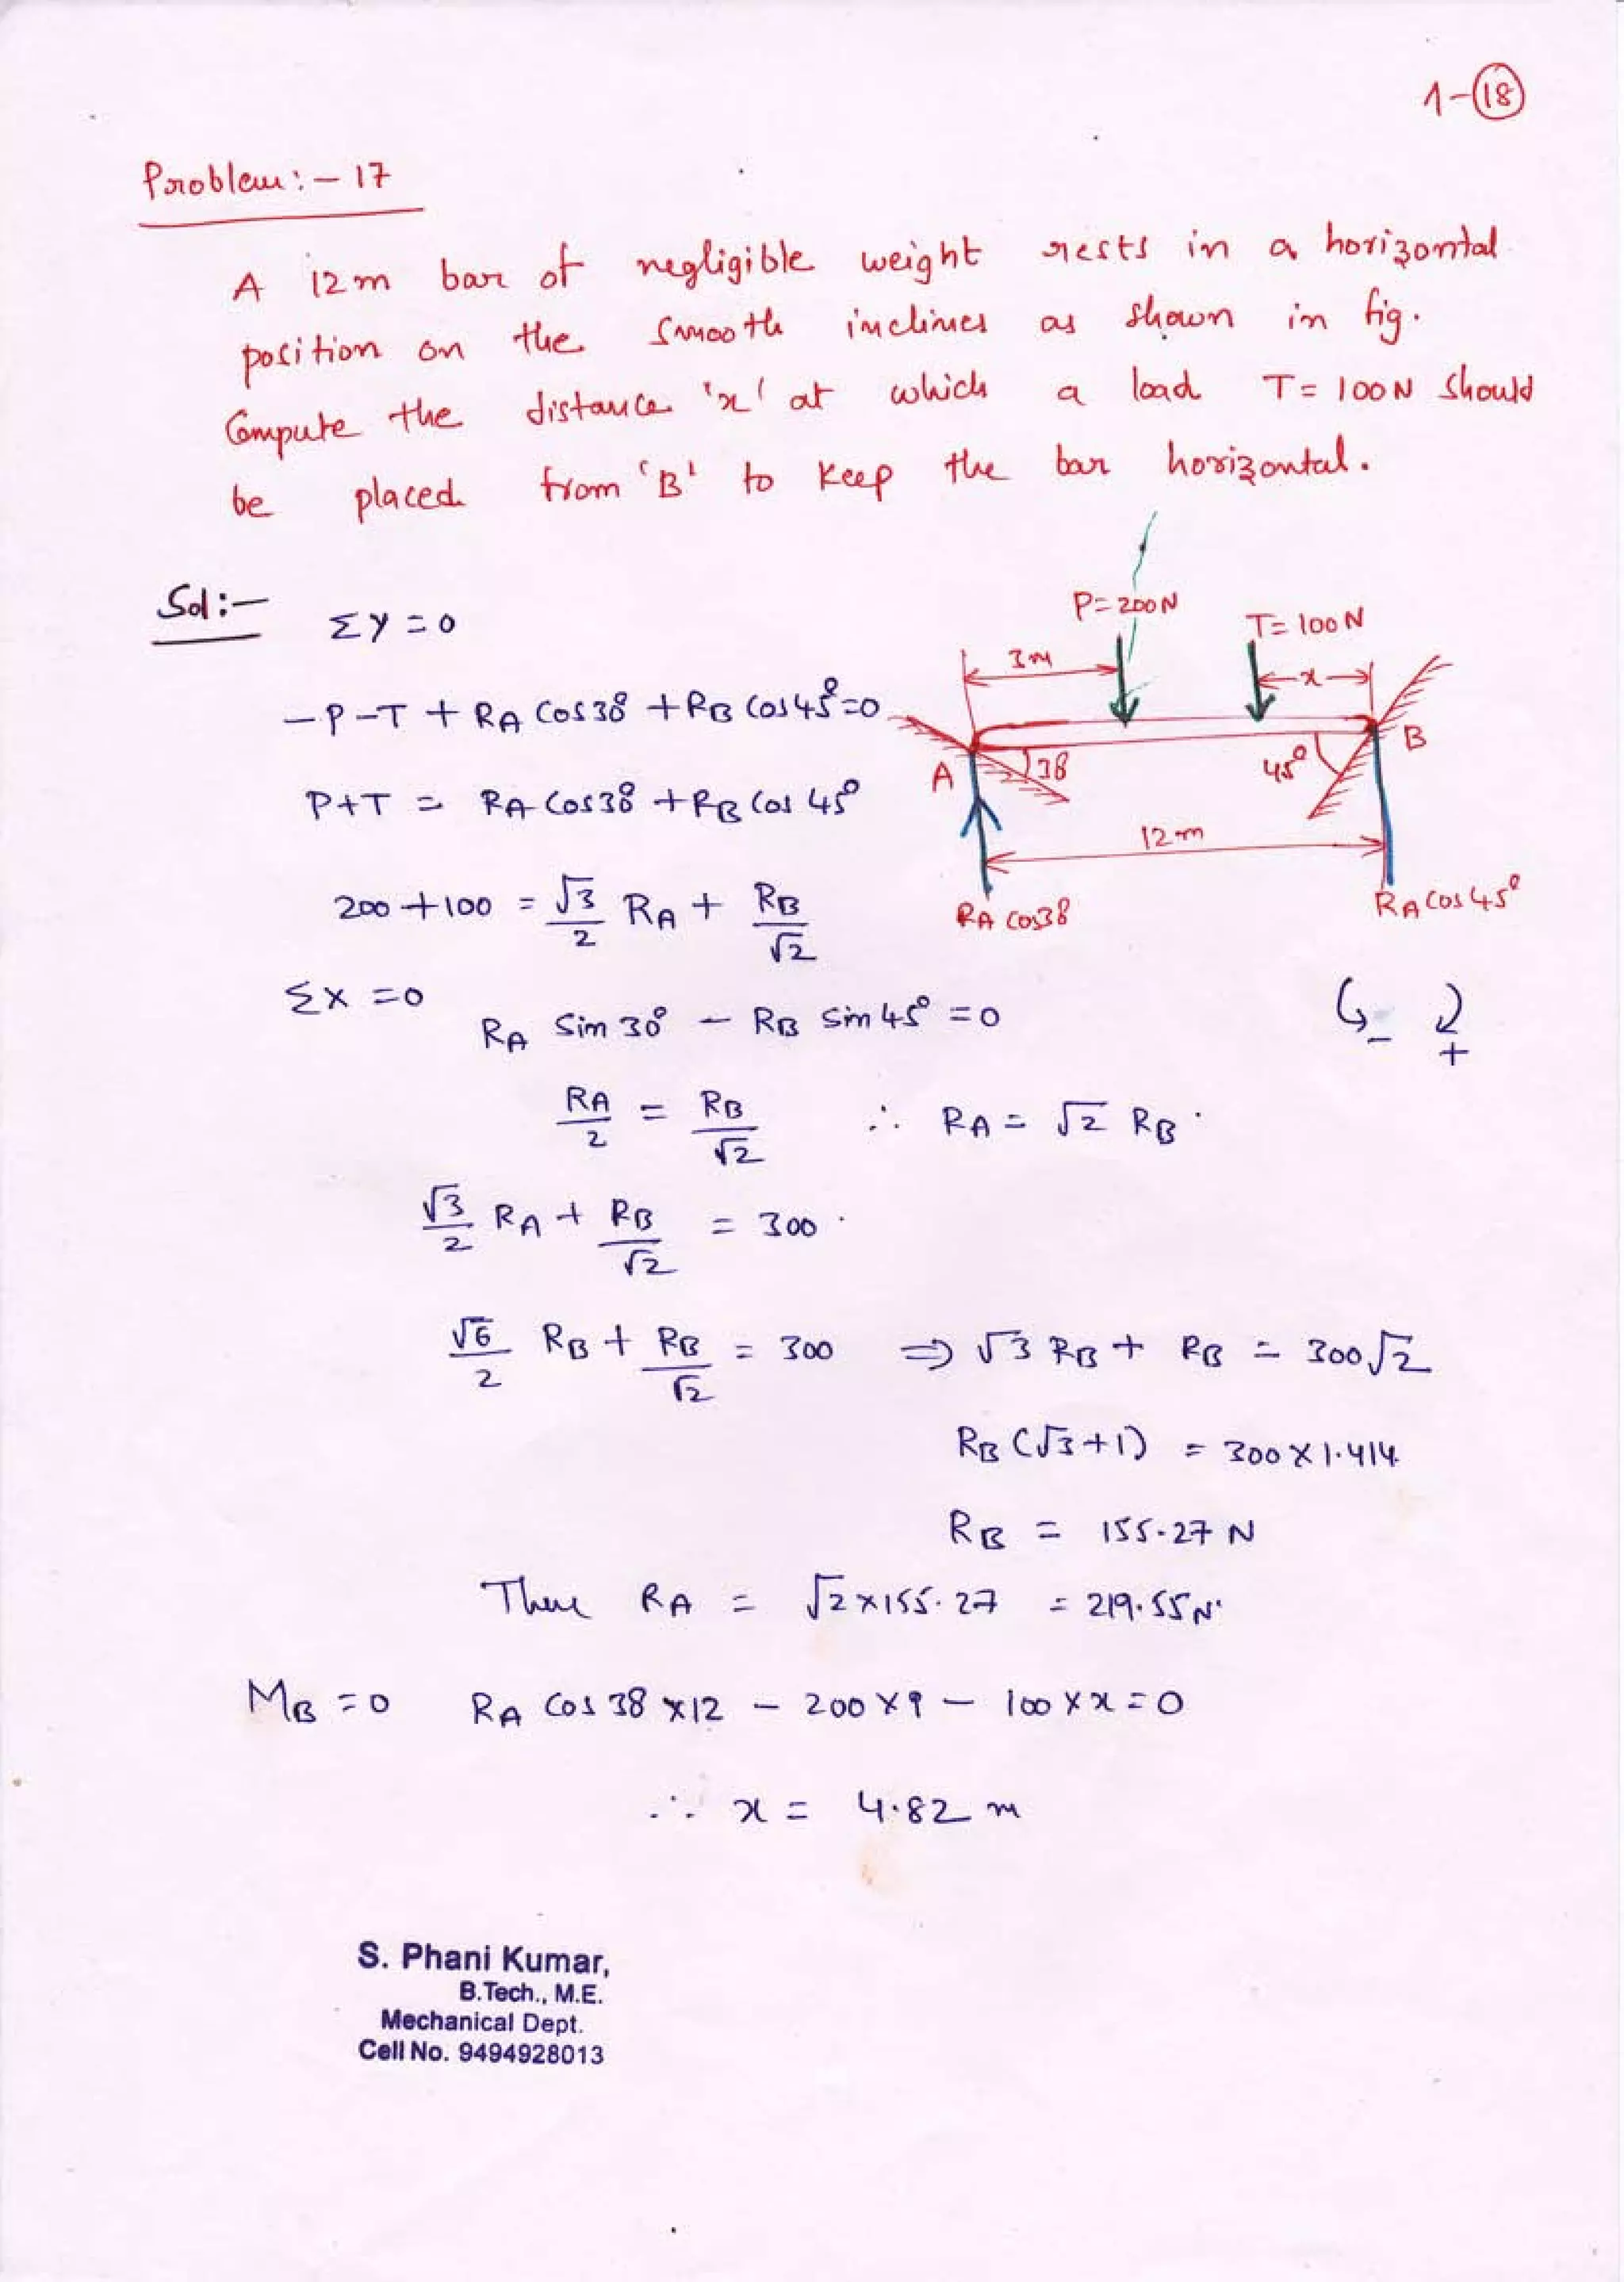 1-(18)
Problem:- 17
A 12m bar of negligible weight rests in a horizontal
position on the smooth inclines as shown in fig.
Compute the distance 'x' at which a load T= 100N should
be placed from 'B' to keep the bar horizontal.
Sol:-
ΣY=0
-P-T + RA Cos30° + RB Cos45°=0
P+T = RA Cos30° + RB Cos 45°
200+100 = √3/2 RA + RB/√2
P=200N
T=100N
3m
x
A
30
45°
B
12m
RA cos30
RA cos45°
ΣX=0
RA Sin 30° - RB Sin 45° = 0
- +
RA/2 = RB/√2 ∴ RA = √2 RB.
√3/2 RA + RB/√2 = 300.
√6/2 RB + RB/√2 = 300 ⇒ √3 RB + RB = 300√2
RB (√3+1) = 300×1.414
RB = 155.27 N
RA = √2×155.27 = 219.55N.
MB=0 RA Cos 30 ×12 - 200×9 - 100×x=0
∴ x = 4.82 m
S. Phani Kumar,
B.Tech., M.E.
Mechanical Dept.
Cell No. 9494928013